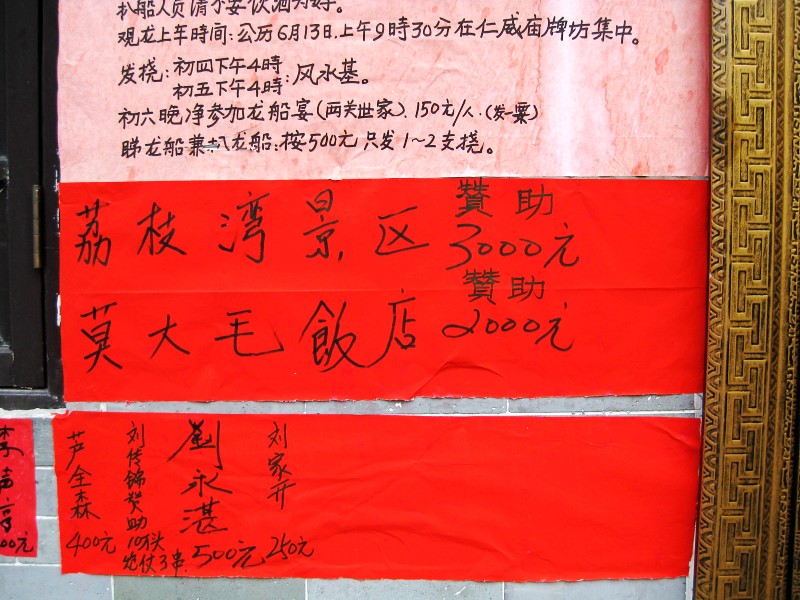 扒船人员请不要饮酒为好。
观龙上午時间:公历6月13日上午9時30分在仁威庙牌坊集中。
发挠:初四下午4時
初五下午4時:风水基。
初六晚净参加龙船宴(两关世家).150元/人.(发一票)
睇龙船兼扒龙船:按500元只发1~2支挠。
荔枝湾景区 贊助 3000元
莫大毛飯店 贊助 2000元
芦全森 400元
刘传锦赞助 10万头 炮仗3串.
劉永湛 500元
刘家开 250元
李声亨 00元